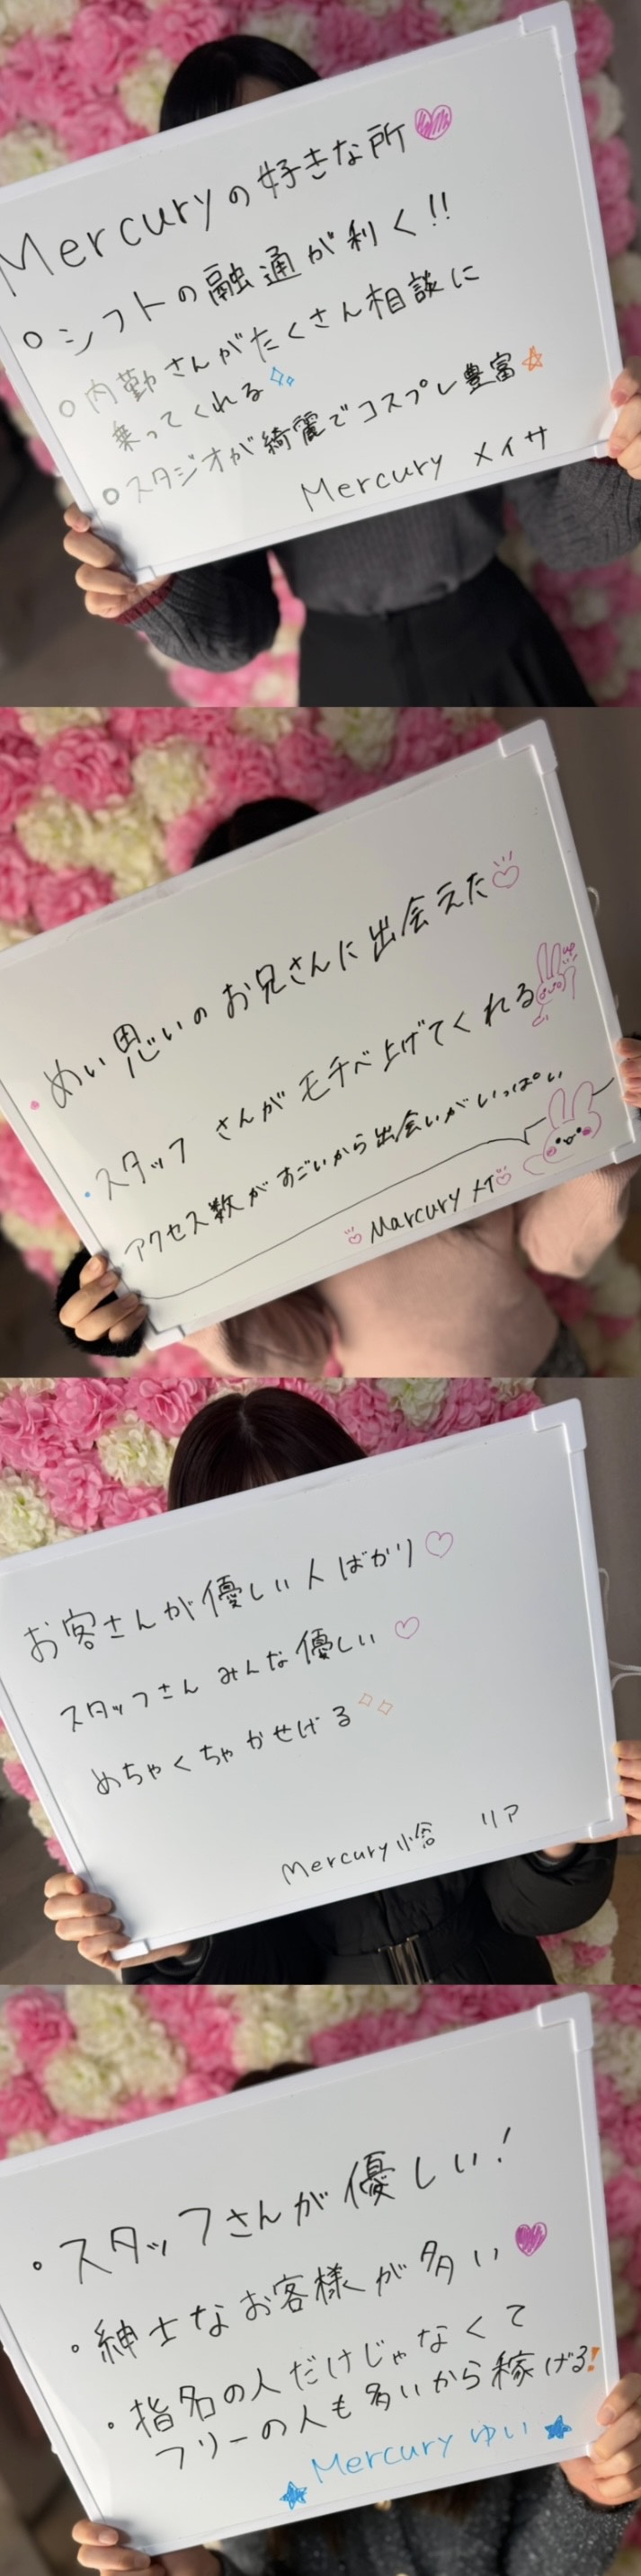 Mercuryの好きな所
○シフトの融通が利く!!
○内勤さんがたくさん相談に
乗ってくれる
○スタジオが綺麗でコスプレ豊富
Mercury メイサ
・めい思いのお兄さんに出会えた
・スタッフさんがモチベ上げてくれる
up
アクセス数がすごいから出会いがいっぱい
Marcury メイ
お客さんが優しい人ばかり
スタッフさんみんな優しい
めちゃくちゃかせげる
Mercury小倉 リア
・スタッフさんが優しい!
・紳士なお客様が多い
・指名の人だけじゃなくて
フリーの人も多いから稼げる!
Mercury ゆい